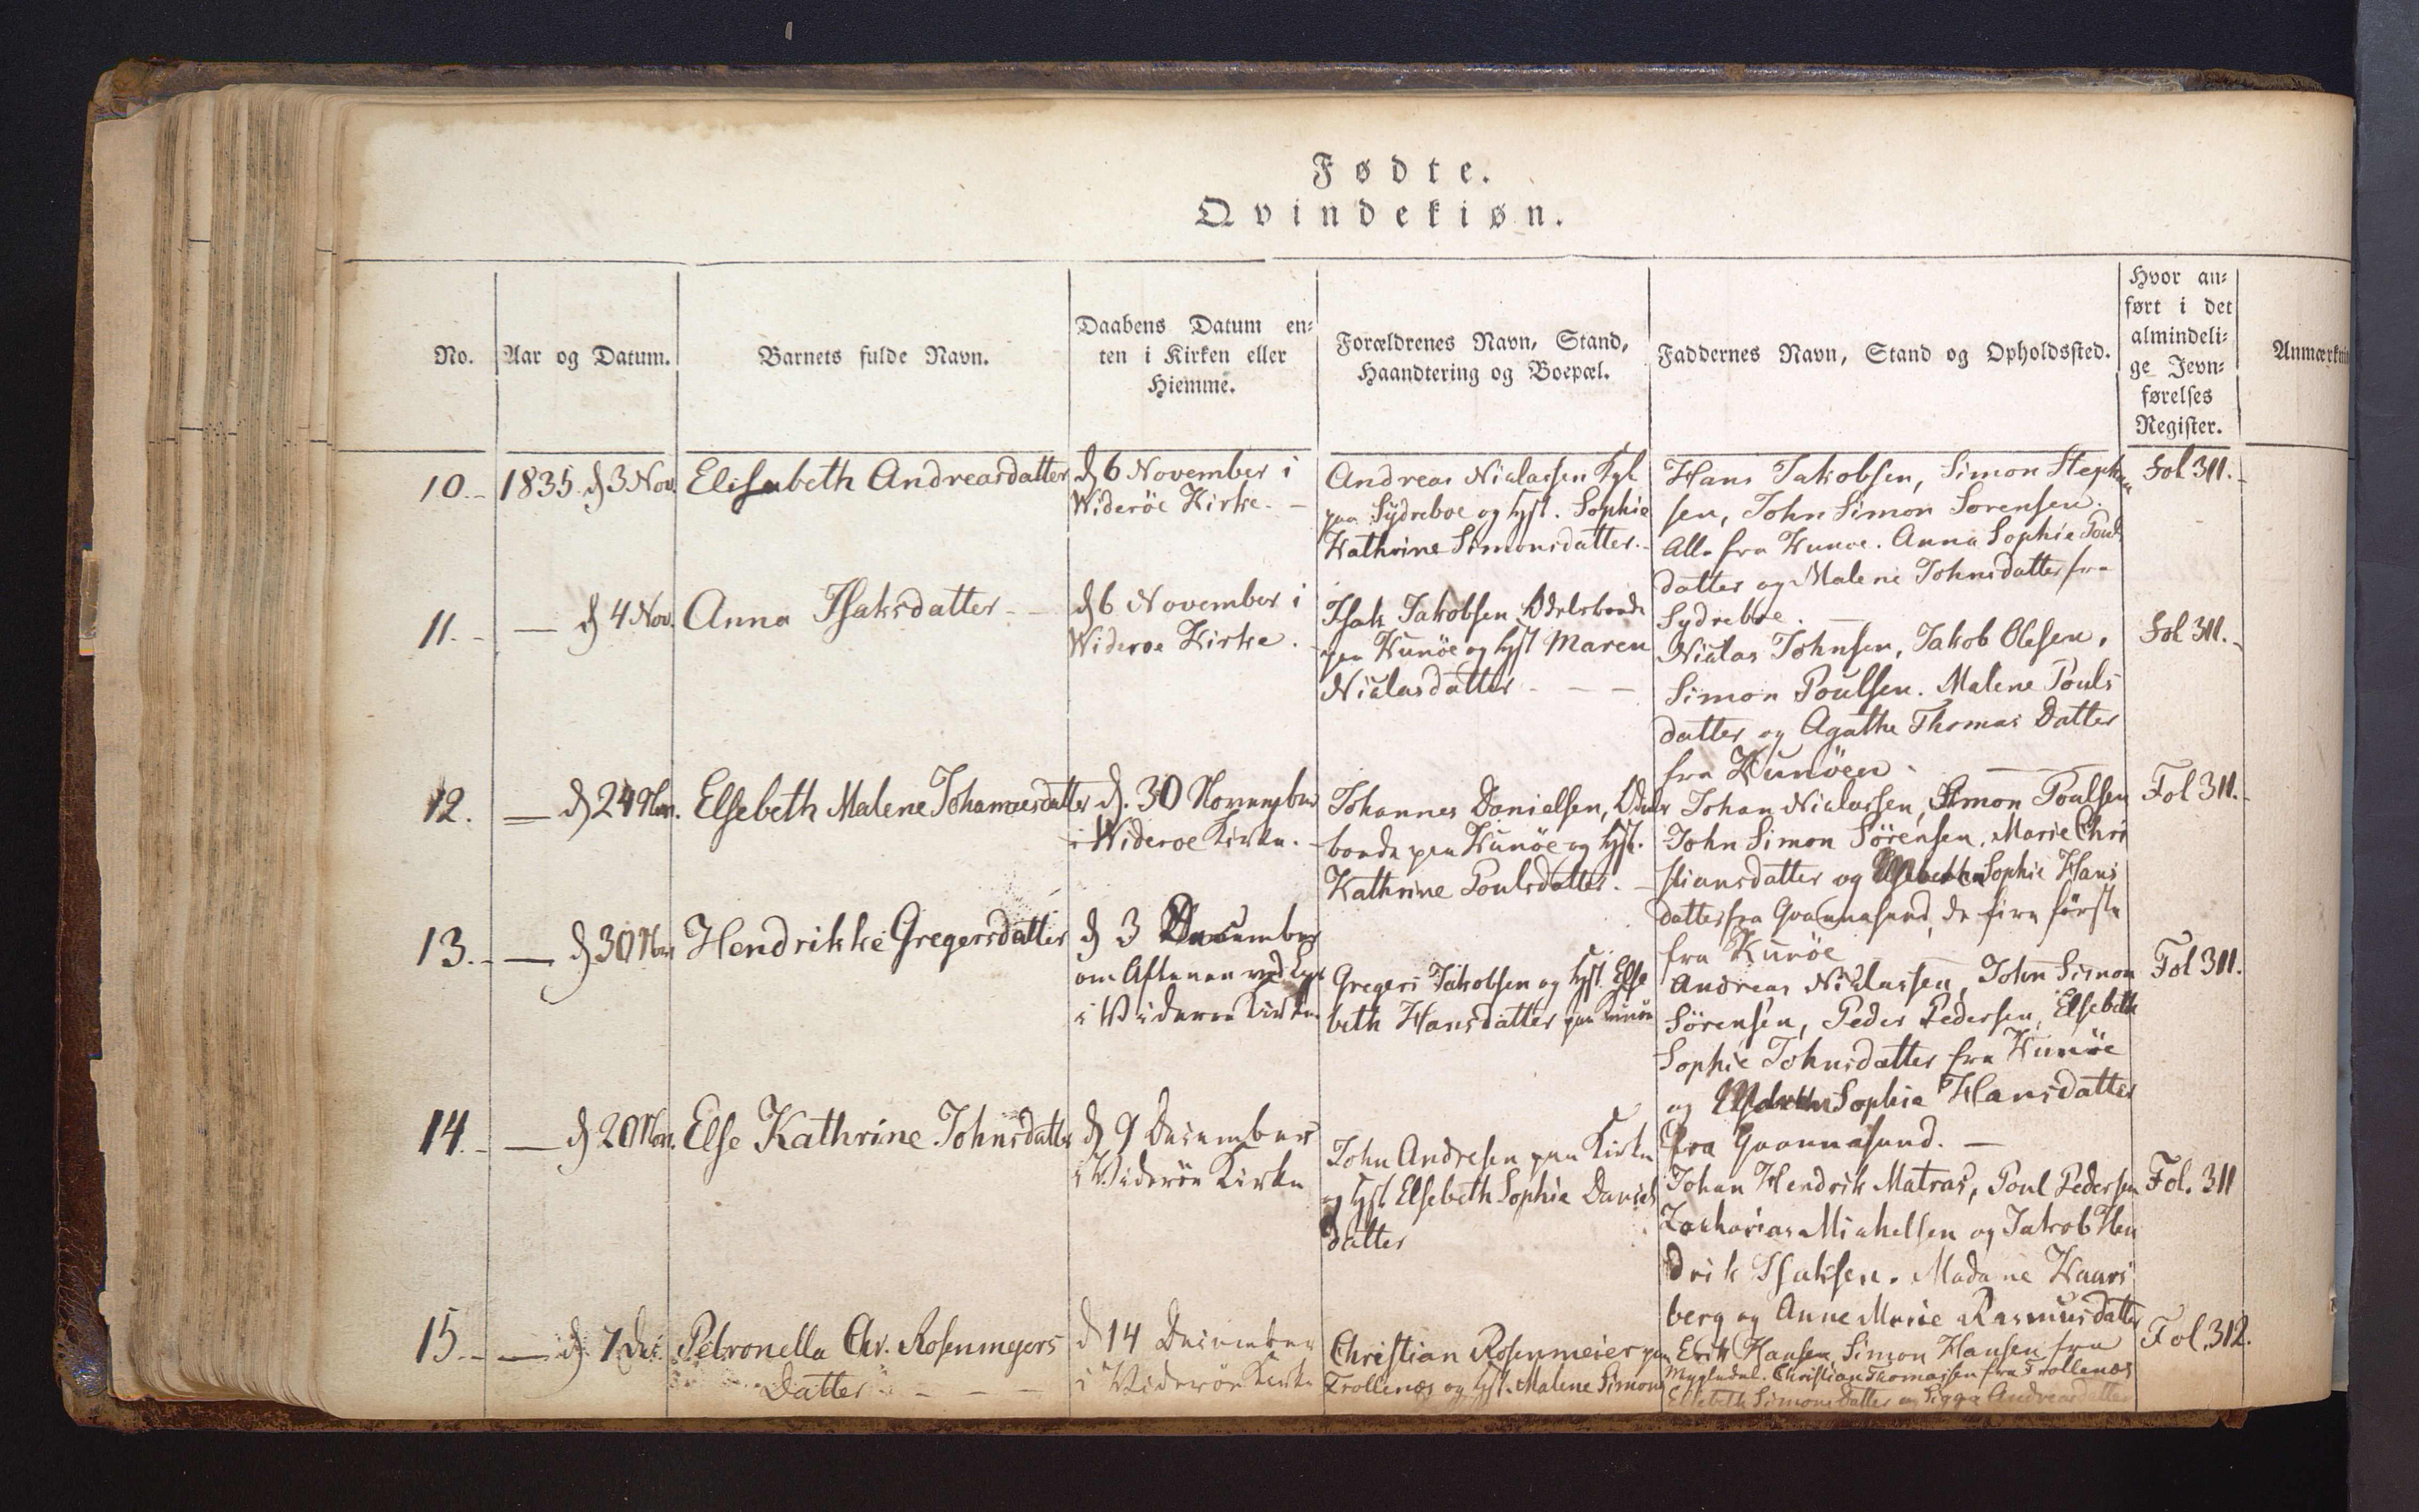 Fødte.
Qvindekiøn.
No.
Aar og Datum.
Barnets fulde Navn.
Daabens Datum en-
ten i Kirken eller
Hiemme.
Forældrenes Navn, Stand,
Haandtering og Boepæl.
Faddernes Navn, Stand og Opholdssted.
Hvor an-
ført i det
almindeli-
ge Jevn-
førelses
Register.
Anmærkni
10.-
1835. d 3 Nov.
Elisabeth Andreasdatter
d 6 November i
Wideröe Kirke. -
Andreas Niclassen
paa Sydreboe og Hst. Sophie
Kathrine Simonsdatter.-
Hans Jakobsen, Simon Stephan
sen, John Simon Sorensen.
Alle fra Kunoe. Anna Sophie Pouls
datter og Malene Johnsdatter fra
Sydreboe.
Fol 311.-
11.-
— d 4 Nov.
Anna Isaksdatter -
d 6 November i
Wideroe Kirke.
Isak Jakobsen, Odelsbonde
paa Kunöe og Hst Maren
Niclasdatter - - -
Niclas Johnsen, Jakob Olesen,
Simon Poulsen. Malene Pouls
datter og Agathe Thomas Datter
fra Kunöen -
Fol 311.-
12.
— d 24 Nov.
Elsebeth Malene Johannesdatter
d. 30 November
i Wideroe Kirke. -
Johannes Danielsen, Odels
bonde paa Kunöe og Hst.
Kathrine Poulsdatter. -
Johan Niclassen, Simon Poulsen
John Simon Sörensen, Marie Chri
stiansdatter og Sophie Hans
datter fra Qvannasund, de fire första
fra Kunöe
Fol 311.
13.-
— d 30 Nov
Hendrikke Gregersdatter
d 3 December
om Aftenen ved Lys
i Wideroe Kirke
Gregers Jakobsen og Hst. Else
beth Hansdatter paa Kunöe
Andreas Niclassen, John Simon
Sörensen, Peder Pedersen, Elsebeth
Sophie Johnsdatter fra Kunöe
og Sophie Hansdatter
fra Qvannasund. -
Fol 311.
14.-
— d 20 Nov.
Else Kathrine Johnsdatter
d 9 December
i Wideröe Kirke
John Andresen paa Kirke
og Hst Elsebeth Sophie Daniels
datter
Johan Hendrik Matras, Poul Pedersen
Zacharias Michelsen og Jakob Hen
drik Isaksen. Madame
berg og Anne Marie Rasmusdatter
Fol. 311
15.-
— d. 7 Dec
Petronella Chr. Rosenmeyers
Datter - - -
d 14 December
i Wideröe Kirke
Christian Rosenmeier paa
Trollenæs og Hst. Malene Simons
Erik Hansen Simon Hansen fra
Mygledal. Christian Thomassen fra Trollenæs
Elsebeth Simons Datter og Sigga Andreasdatter
Fol. 312.